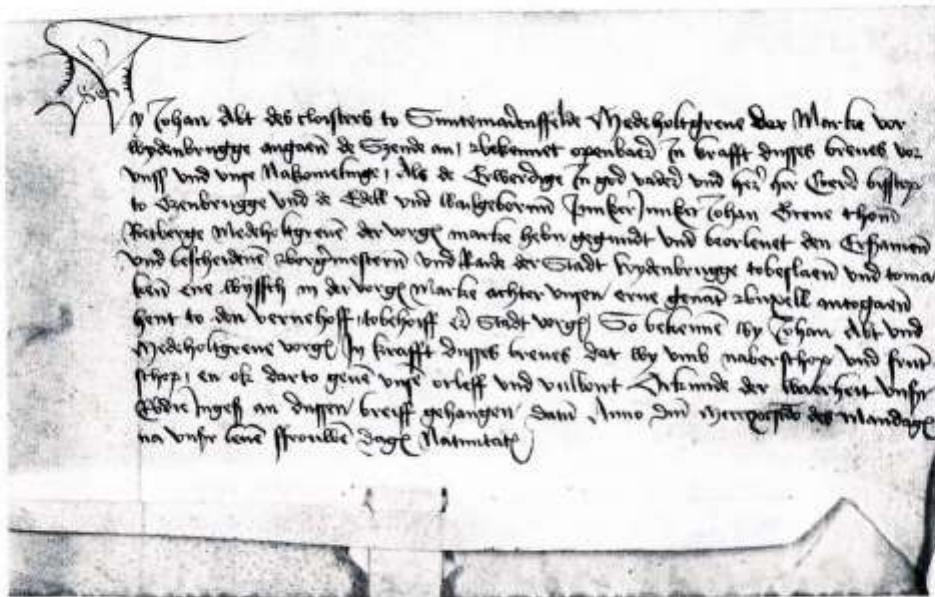 Wy Johan Abt des cloisters to Suntemarienffelde Medeholtgreve der Marke vor
Wydenbrugge angaen de Szende an, Bekennet openbaer Jn krafft dusses breves vor
unss und unse Nakomelinge, Als de Erwerdige Jn god vader und her her Coerd bisscop
to Ozenbrugge und de Edell und Wolgeborenn Junker Johan Greve thom
Retberge Medeholtgreven der vorg marke hebn gegundt und beorlevet den Ersamen
und bescheidenen Borgmestern und Raide der Stadt Wydenbrugge tobeslaen und toma
ken ene Wyssch in der vorg Marke achter unsen erve genant antogaen
hent to den vernehoff, tobehoiff er Stadt vorg So bekennen Wy Johan Abt und
Medeholtgreve vorg Jn krafft dusses breves dat Wy umb naberschop und frunt
schop, en ok darto geven unse orleff und vulbort Orkunde der Warheit unser
Abdie Jngess an dussen breiff gehangen, datum Anno dni des Mandages
na unser leven ffrouwen dage Natiuitatis